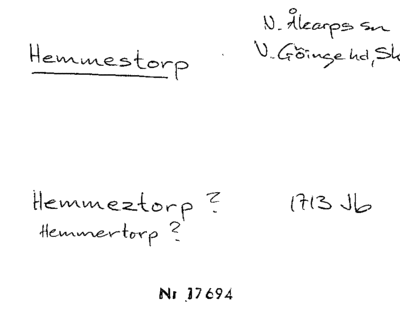 N. Åkarps sn
Hemmestorp
V. Göinge hd, Sk
Hemmeztorp ? 1713 Jb
Hemmertorp ?
Nr 17694